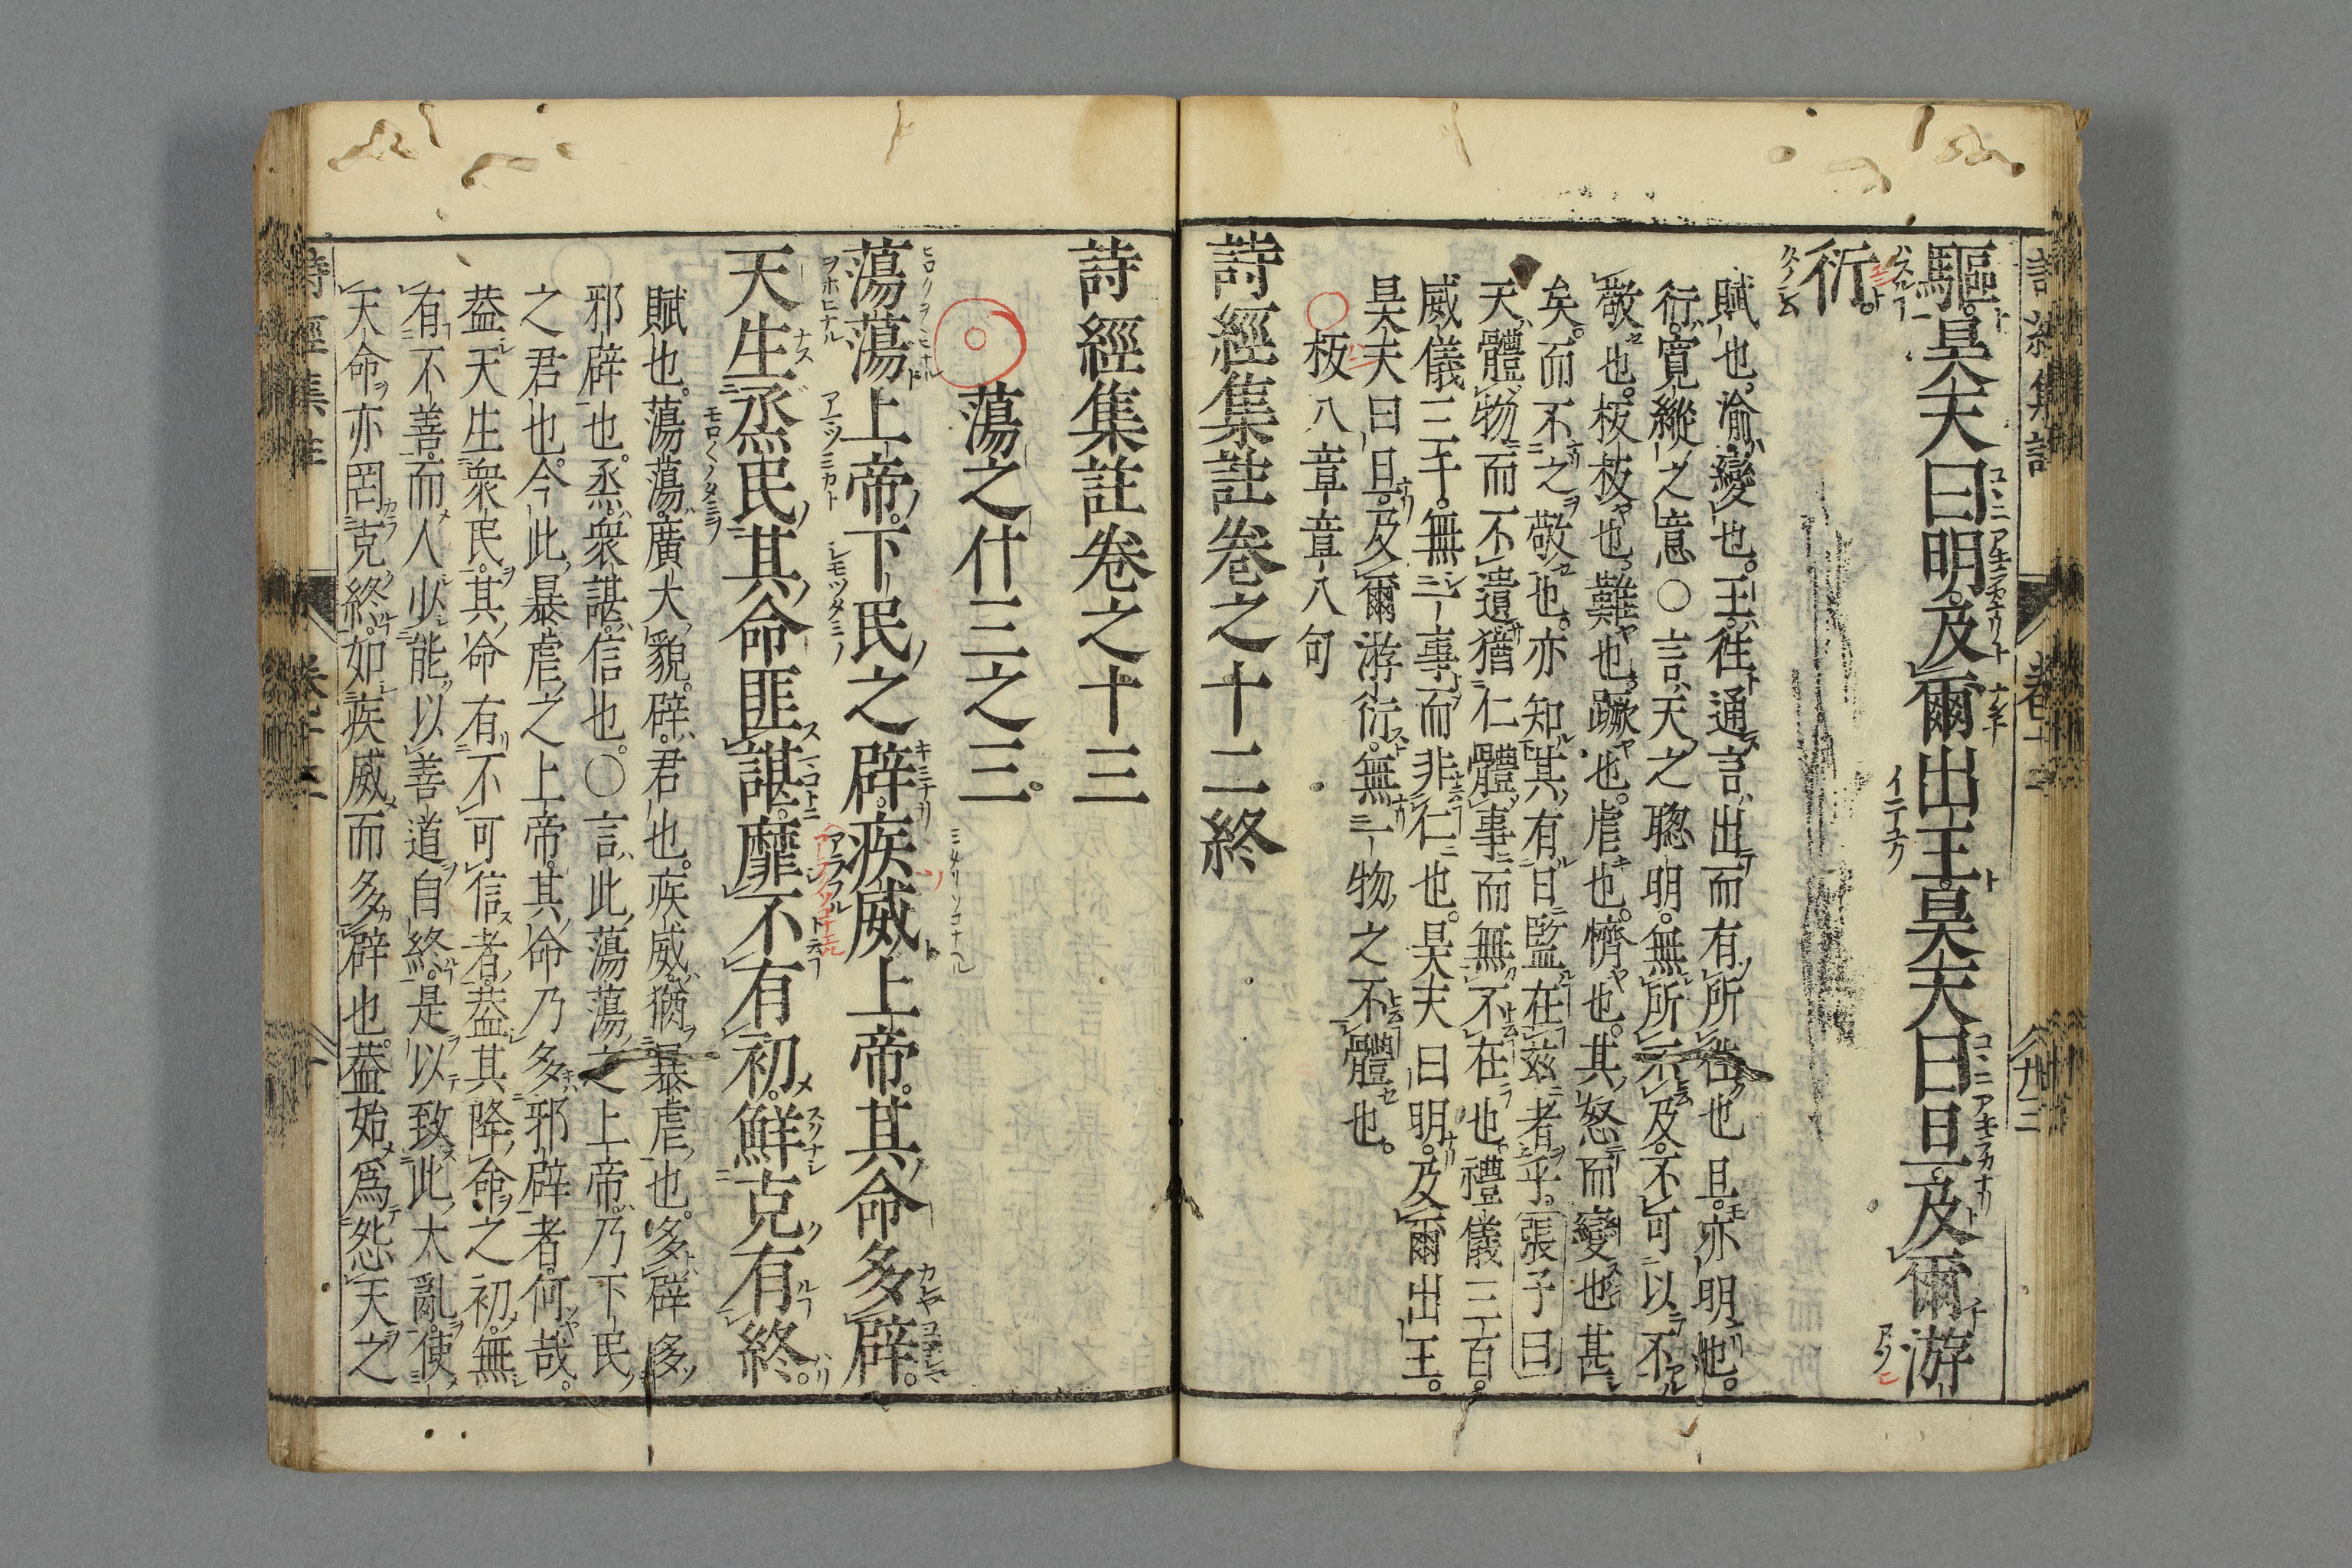 驅。昊天曰明。及爾出王。昊天曰旦。及爾游
衍。
賦也。渝變也。王往通。言出而有所往也。旦亦明也。
衍寬縱之意○言天之聰明。無所不及。不可以不
敬也。板板也。難也。蹶也。虐也。懠也。其怒而變也甚
矣。而不之敬也。亦知其有日監在茲者乎。張子曰
天體物而不遺。猶仁體事而無不在也。禮儀三百。
威儀三千。無一事而非仁也。昊天曰明。及爾出王。
昊天曰旦。及爾游衍。無一物之不體也。
○板八章章八句
詩經集註卷之十二終
詩經集註卷之十三
蕩之什三之三。
蕩蕩上帝。下民之辟。疾威上帝。其命多辟。
天生烝民。其命匪諶。靡不有初。鮮克有終。
賦也。蕩蕩。廣大貌。辟。君也。疾威。猶暴虐也。多辟多
邪辟也。烝。衆。諶。信也。○言此蕩蕩之上帝。乃下民
之君也。今此暴虐之上帝。其命乃多邪辟者。何哉。
葢天生衆民。其命有不可信者。葢其降命之初。無
有不善。而人少能以善道自終。是以致此大亂。使
天命亦罔克終。如疾威而多辟也。葢始爲怨天之